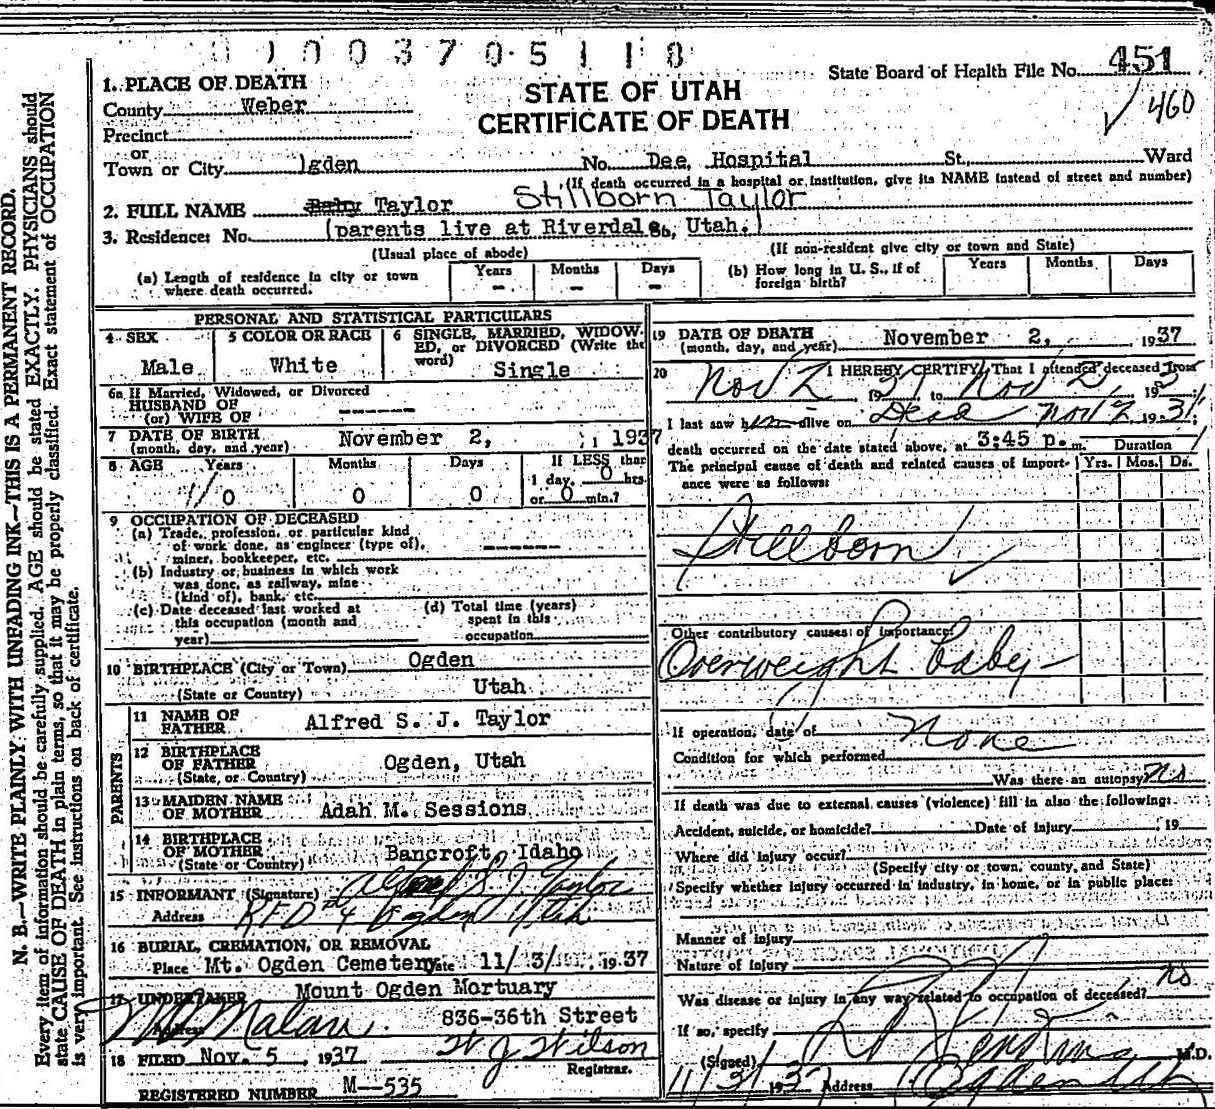 01003705118
State Board of Health File No. 451
460
STATE OF UTAH
CERTIFICATE OF DEATH
1. PLACE OF DEATH
County Weber
Precinct
or
Town or City Ogden No. Dee Hospital St., Ward
(If death occurred in a hospital or institution, give its NAME instead of street and number)
2. FULL NAME Baby Taylor Stillborn Taylor
3. Residence: No. (parents live at Riverdale, Utah.)
(Usual place of abode) (If non-resident give city or town and State)
(a) Length of residence in city or town where death occurred. Years - Months - Days -
(b) How long in U. S., if of foreign birth? Years Months Days
PERSONAL AND STATISTICAL PARTICULARS
4 SEX Male
5 COLOR OR RACE White
6 SINGLE, MARRIED, WIDOWED, or DIVORCED (Write the word) Single
6a If Married, Widowed, or Divorced
HUSBAND OF
(or) WIFE OF -----
7 DATE OF BIRTH (month, day, and year) November 2, 1937
8 AGE Years 0 Months 0 Days 0
If LESS than 1 day, 0 hrs. or 0 min.?
9 OCCUPATION OF DECEASED
(a) Trade, profession, or particular kind
of work done, as engineer (type of),
miner, bookkeeper, etc. -----
(b) Industry or business in which work
was done, as railway, mine
(kind of), bank, etc.
(c) Date deceased last worked at
this occupation (month and
year)
(d) Total time (years)
spent in this
occupation
10 BIRTHPLACE (City or Town) Ogden
(State or Country) Utah
PARENTS
11 NAME OF FATHER Alfred S. J. Taylor
12 BIRTHPLACE OF FATHER (State, or Country) Ogden, Utah
13 MAIDEN NAME OF MOTHER Adah M. Sessions
14 BIRTHPLACE OF MOTHER (State or Country) Bancroft, Idaho
15 INFORMANT (Signature) Alfred S. J. Taylor
Address RFD #4 Ogden Utah
16 BURIAL, CREMATION, OR REMOVAL
Place Mt. Ogden Cemetery Date 11/3/ 1937
17 UNDERTAKER Mount Ogden Mortuary
Address Malan 836-36th Street
18 FILED Nov. 5 1937 W J Wilson
Registrar.
REGISTERED NUMBER M--535
19 DATE OF DEATH (month, day, and year) November 2, 1937
20 I HEREBY CERTIFY, That I attended deceased from
Nov 2 1937 to Nov 2, 193
I last saw him alive on Dead Nov 2 1937
death occurred on the date stated above, at 3:45 p. m. Duration
The principal cause of death and related causes of importance were as follows: Yrs. Mos. Ds.
Stillborn
Other contributory causes of importance:
Overweight baby
If operation, date of None
Condition for which performed
Was there an autopsy no
If death was due to external causes (violence) fill in also the following:
Accident, suicide, or homicide? Date of injury 19
Where did injury occur?
(Specify city or town, county, and State)
Specify whether injury occurred in industry, in home, or in public place:
Manner of injury
Nature of injury
Was disease or injury in any way related to occupation of deceased? no
If so, specify
(Signed) M.D.
11/3/1937 Address Ogden Utah
N. B.—WRITE PLAINLY WITH UNFADING INK—THIS IS A PERMANENT RECORD.
Every item of information should be carefully supplied. AGE should be stated EXACTLY. PHYSICIANS should
state CAUSE OF DEATH in plain terms, so that it may be properly classified. Exact statement of OCCUPATION
is very important. See instructions on back of certificate.